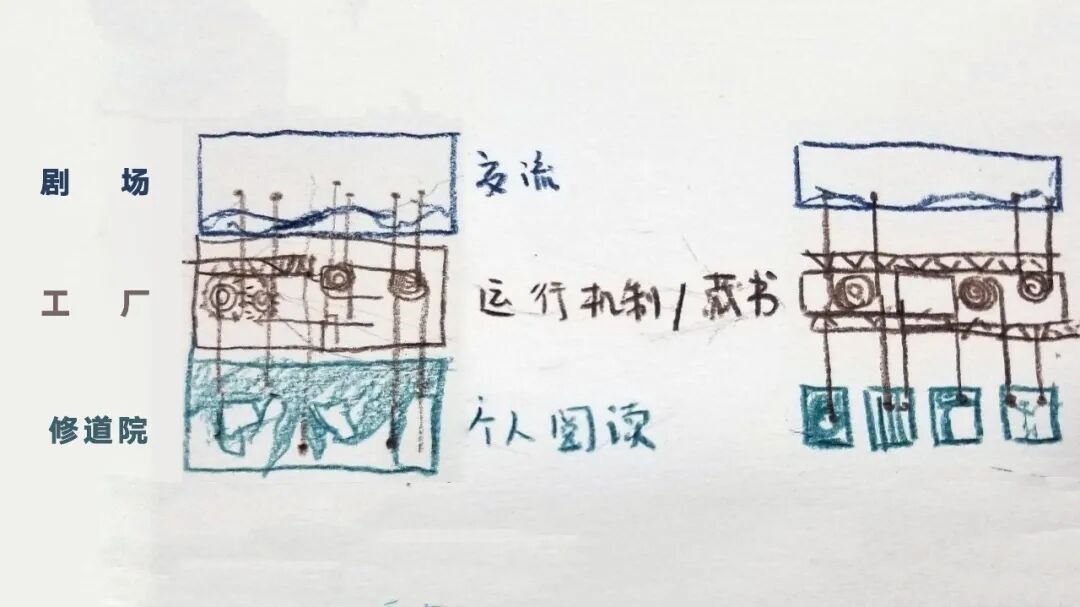 剧场 交流
工厂 运行机制/藏书
修道院 个人阅读